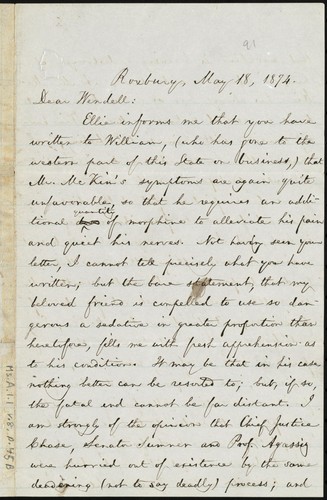 91
Roxbury, May 18, 1874.
Dear Wendell:
Ellie informs me that you have
written to William, (who has gone to the
western part of this State on business,) that
Mr. McKim's symptoms are again quite
unfavorable, so that he requires an addi-
tional quantity of morphine to alleviate his pain
and quiet his nerves. Not having seen your
letter, I cannot tell precisely what you have
written; but the bare statement, that my
beloved friend is compelled to use so dan-
gerous a sedative in greater proportion than
heretofore, fills me with fresh apprehension as
to his condition. It may be that in his case
nothing better can be resorted to; but, if so,
the fatal end cannot be far distant. I
am strongly of the opinion that Chief Justice
Chase, Senator Sumner and Prof. Agassiz
were hurried out of existence by the same
deadening (not to say deadly) process; and
Ms.A.1.1 v.8, p.45B